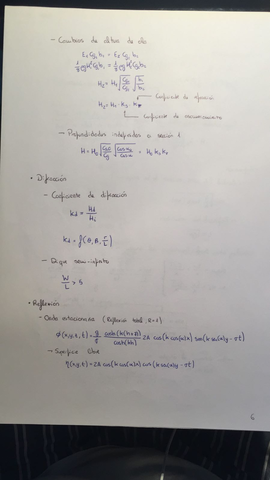 - Cambios de altura de ola
E₁ Cg₁ b₁ = E₂ Cg₂ b₂
1/8 ρg H₁² Cg₁ b₁ = 1/8 ρg H₂² Cg₂ b₂
H₂ = H₁ √(Cg₁/Cg₂) √(b₁/b₂)
Coeficiente de refracción
H₂ = H₁ · Ks · KR
Coeficiente de
- Profundidades indefinidas a sección 1
H = H₀ √(Cg₀/Cg) √(cos α₀/cos α) = H₀ Ks KR
• Difracción
- Coeficiente de difracción
Kd = Hd/Hi
Kd = f(θ, β, r/L)
- Dique semi-infinito
W/L > 5
• Reflexión
- Onda estacionaria (Reflexión total, R=1)
cosh(k(h+z))/cosh(kh) 2A cos(k cos(α)x) sen(k sen(α)y - σt)
- Superficie libre
η(x,y,t) = 2A cos(k cos(α)x) cos(k sen(α)y - σt)
6